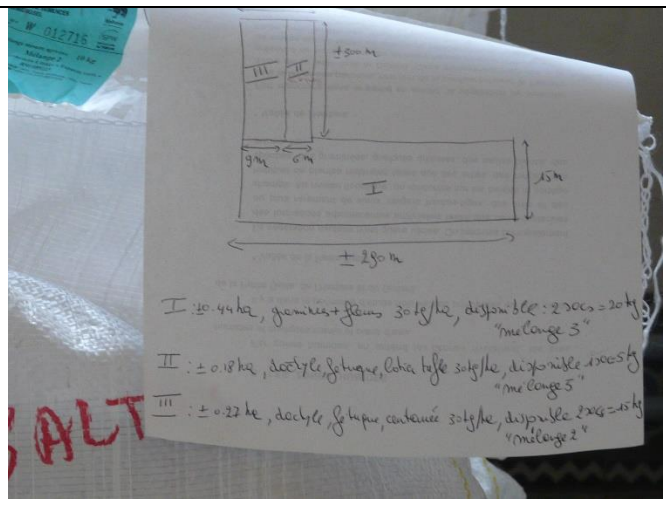 W 012716
Mélange 2 10 kg
III II ± 300 m
9m 6m
I 15m
± 290 m
I : ±0.44 ha, graminées + fleurs 30 kg/ha, disponible : 2 sacs = 20 kg
"mélange 3"
II : ± 0.18 ha, dactyle, fétuque, lotier, trèfle 30 kg/ha, disponible 1 sac 5 kg
"mélange 5"
III : ± 0.27 ha, dactyle, fétuque, centaurée 30 kg/ha, disponible 2 sacs = 15 kg
"mélange 2"
SALT